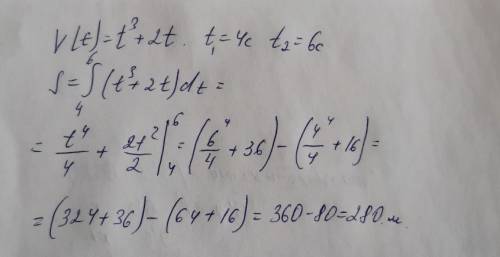 V(t)=t³+2t. t₁=4c t₂=6c
S=∫₄⁶(t³+2t)dt=
= t⁴/4 + 2t²/2 |₄⁶ = (6⁴/4 + 36) - (4⁴/4 + 16) =
= (324+36) - (64+16) = 360-80=280 м.